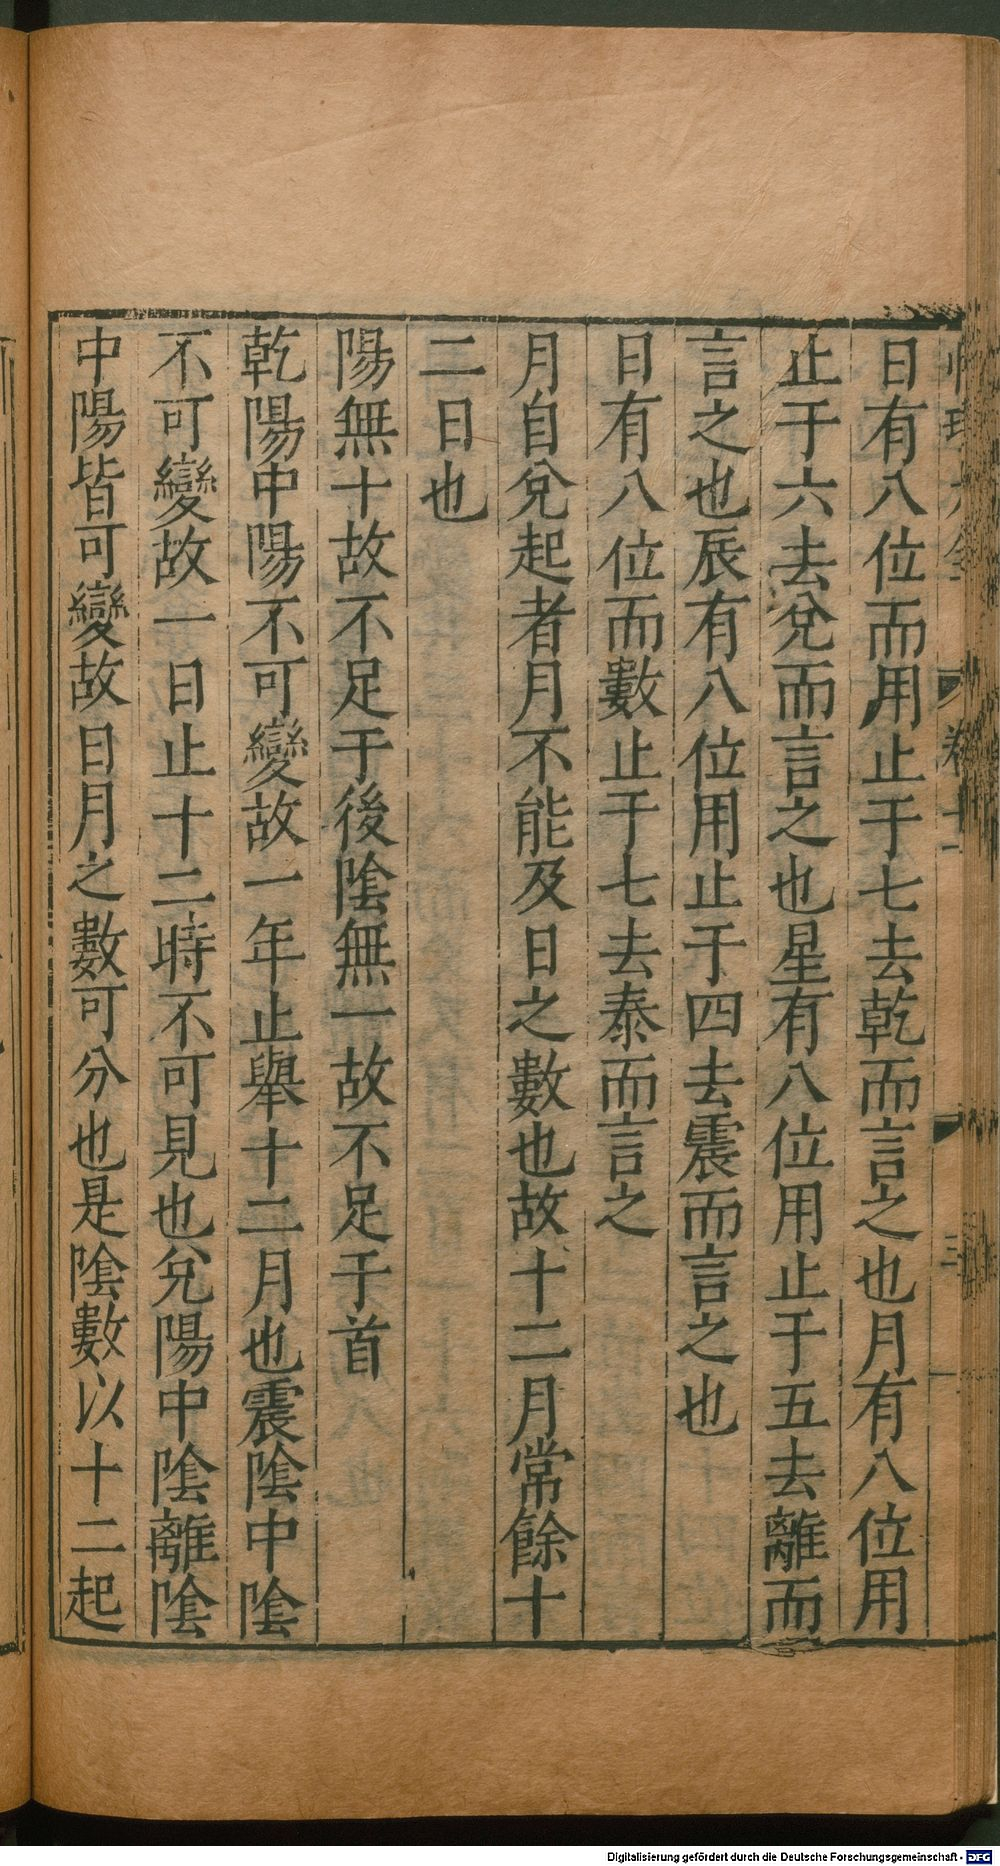 日有八位而用止于七去乾而言之也月有八位用
止于六去兌而言之也星有八位用止于五去離而
言之也辰有八位用止于四去震而言之也
日有八位而數止于七去泰而言之
月自兌起者月不能及日之數也故十二月常餘十
二日也
陽無十故不足于後陰無一故不足于首
乾陽中陽不可變故一年止舉十二月也震陰中陰
不可變故一日止十二時不可見也兌陽中陰離陰
中陽皆可變故日月之數可分也是陰數以十二起
三
Digitalisierung gefördert durch die Deutsche Forschungsgemeinschaft - DFG